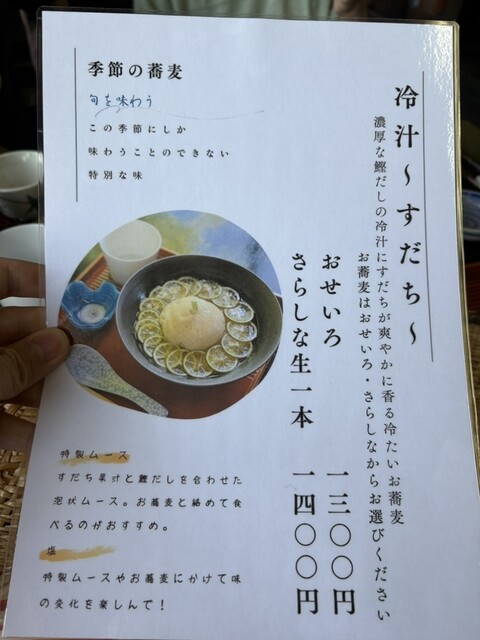 冷汁〜すだち〜
濃厚な鰹だしの冷汁にすだちが爽やかに香る冷たいお蕎麦
お蕎麦はおせいろ・さらしなからお選びください
おせいろ 一三〇〇円
さらしな生一本 一四〇〇円
季節の蕎麦
旬を味わう
この季節にしか
味わうことのできない
特別な味
特製ムース
すだち果汁と鰹だしを合わせた
泡状ムース。お蕎麦と絡めて食
べるのがおすすめ。
塩
特製ムースやお蕎麦にかけて味
の変化を楽しんで!